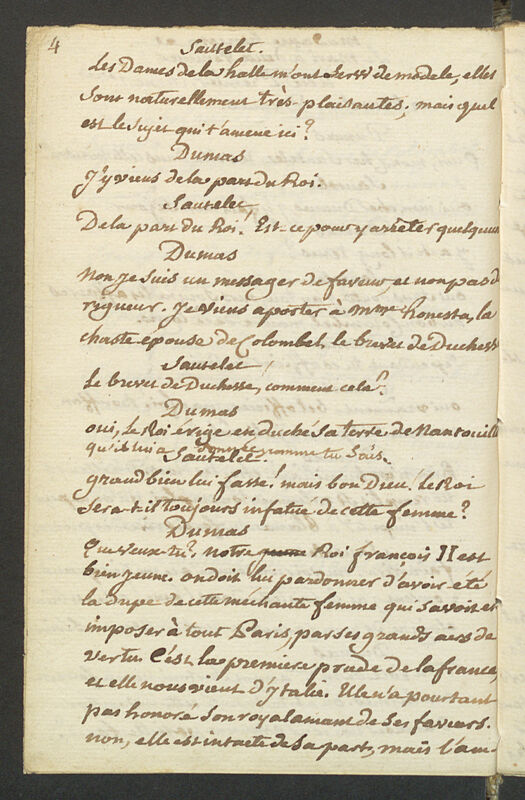 4
Sautelet.
Les Dames de la halle m'ont servi de modele, elles
sont naturellement très-plaisantes; mais quel
est le sujet qui t'amene ici?
Dumas
J'y viens de la part du Roi.
Sautelet
De la part du Roi! Est-ce pour y arrêter quelqu'un
Dumas
Non je suis un messager de faveur et non pas de
rigueur. Je viens aporter à Mme honesta, la
chaste epouse de Colombel, le brevet de Duchesse
Sautelet
Le brevet de Duchesse, comment cela?
Dumas
oui, le Roi érige en duché sa terre de Nantouillet
qu'il lui a donnée comme tu sais.
Sautelet.
grand bien lui fasse! mais bon Dieu! le Roi
sera-t-il toujours infatué de cette femme?
Dumas
Que veux-tu? notre jeune Roi françois II est
bien jeune. on doit lui pardonner d'avoir été
la dupe de cette méchante femme qui savoit en
imposer à tout Paris, par ses grands airs de
vertu. C'est la premiere prude de la france,
et elle nous vient d'ytalie. Elle n'a pourtant
pas honoré son royal amant de ses faveurs.
non, elle est intacte de sa part, mais l'am-